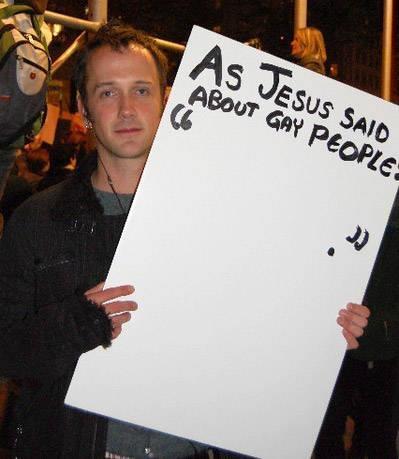 AS JESUS SAID
ABOUT GAY PEOPLE:
“
.”